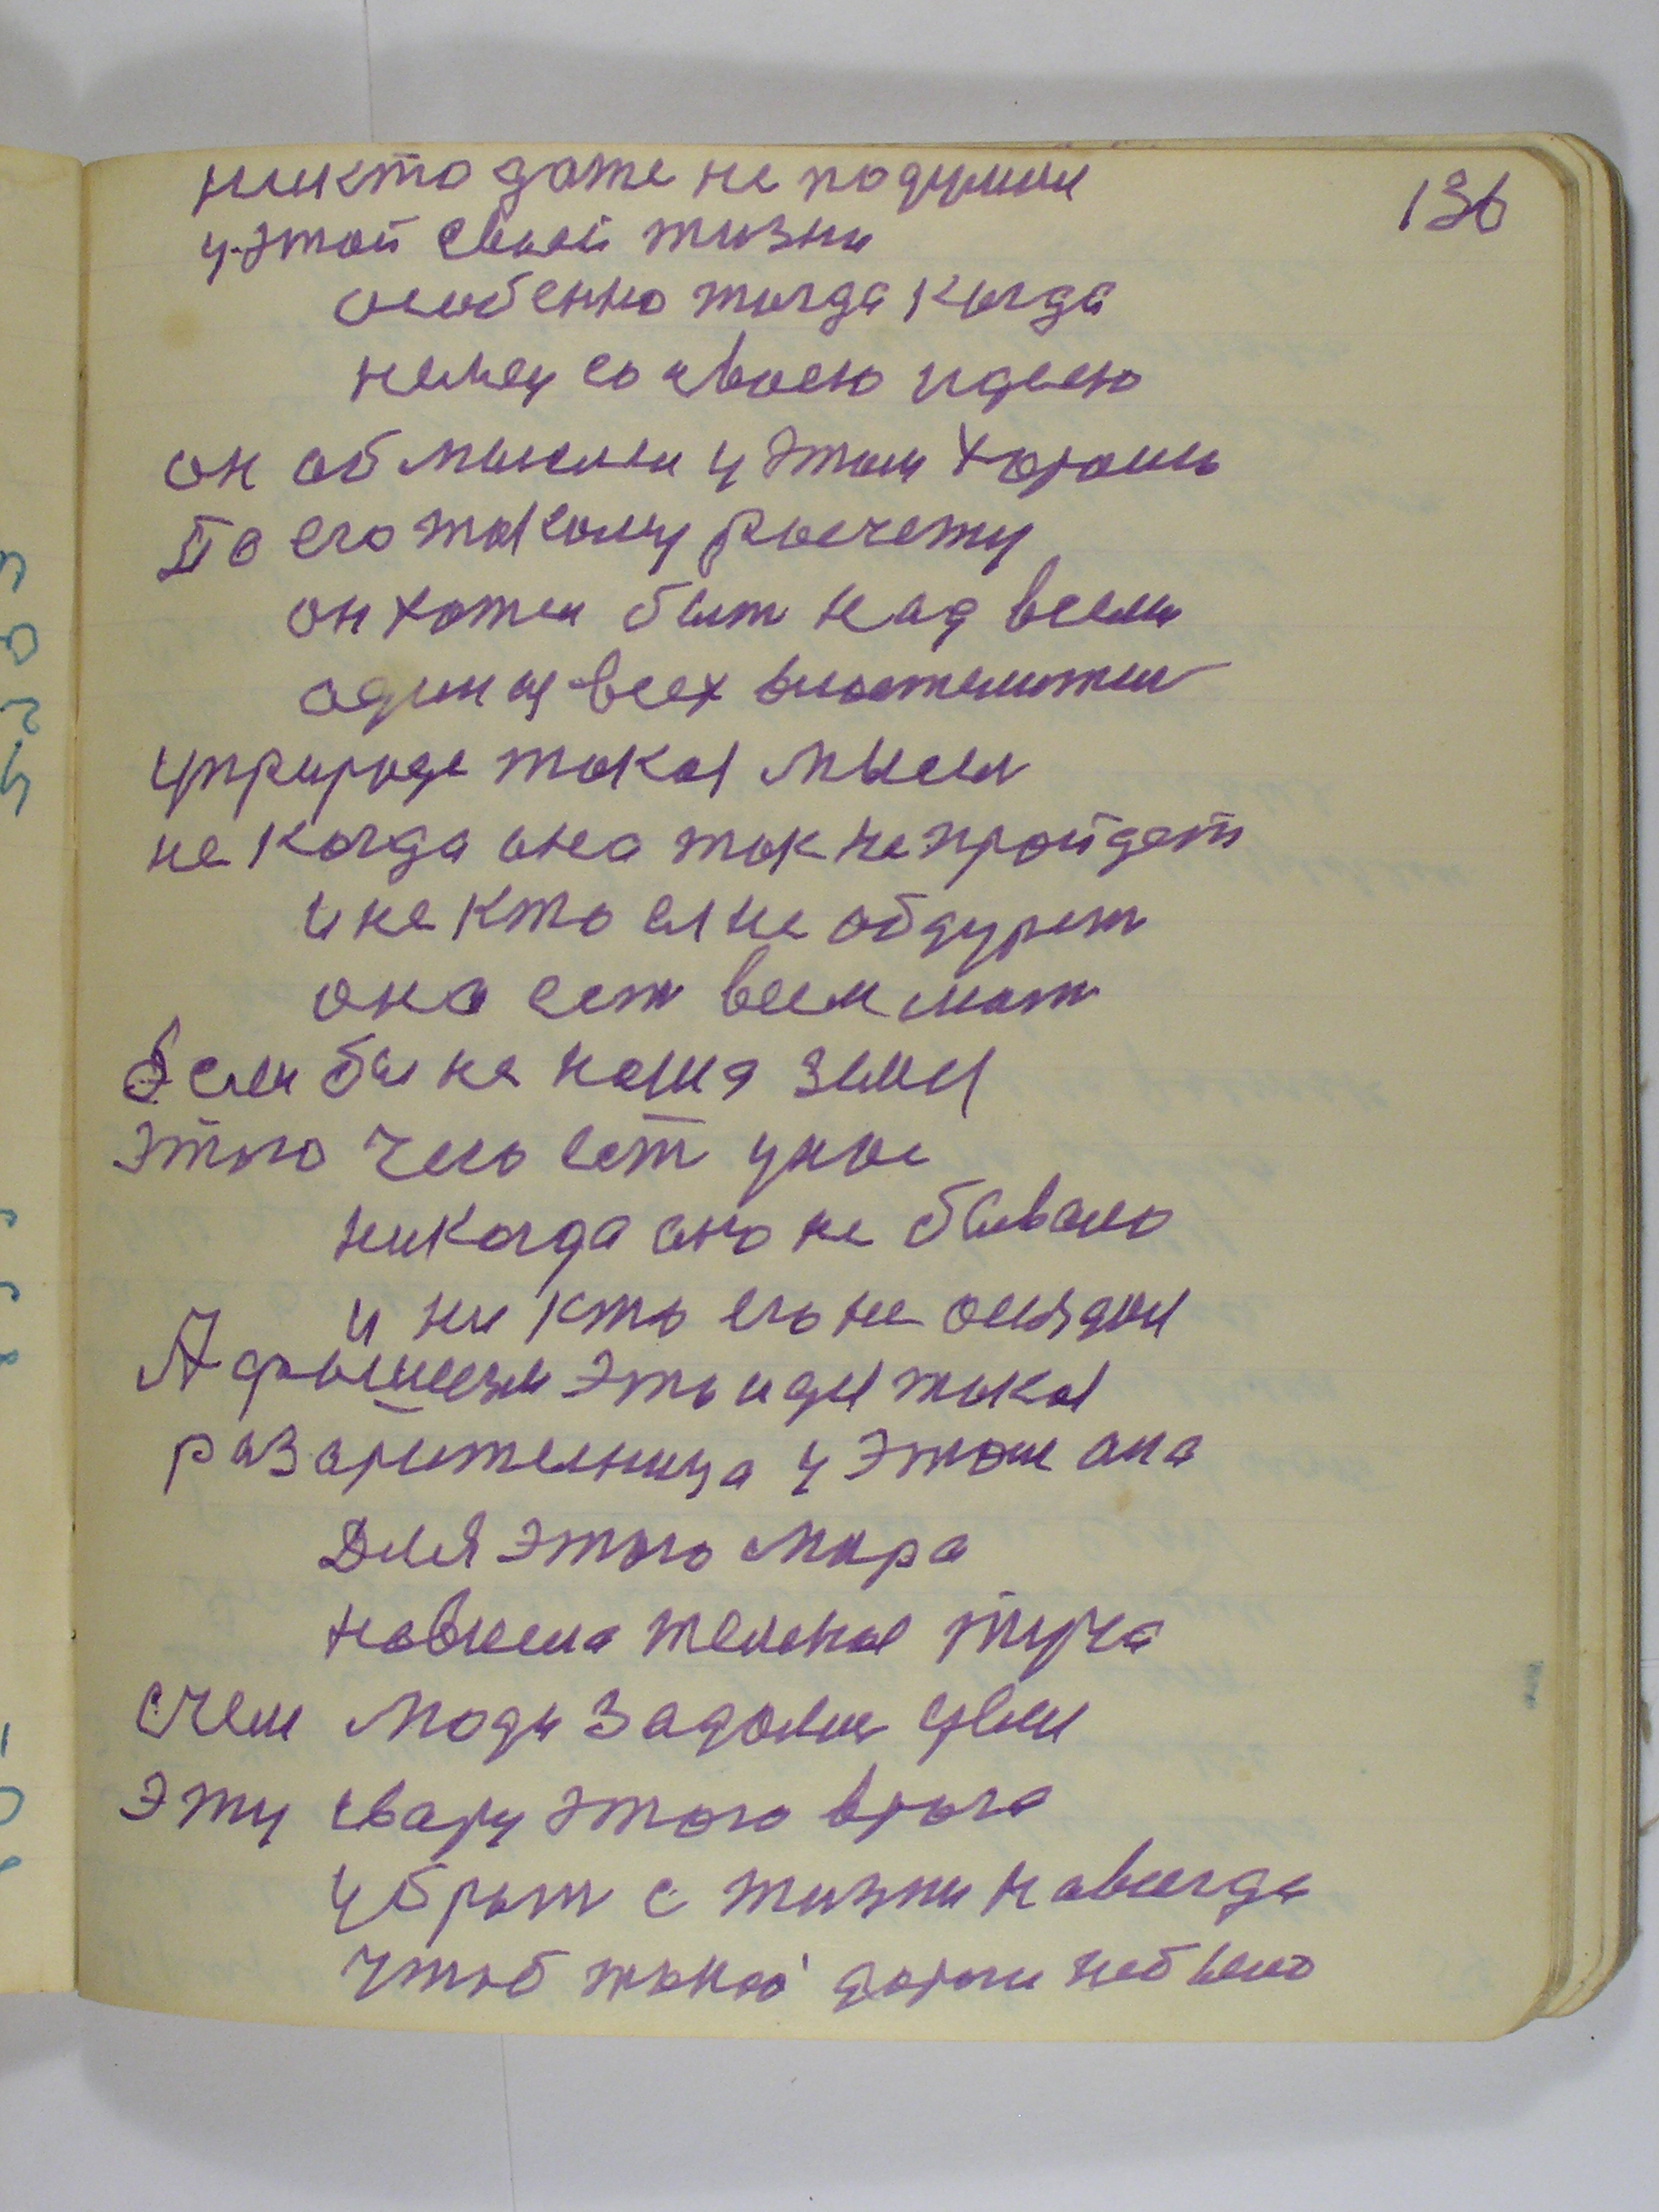 136
никто даже не подумал
у этой своей жизни
особенно тогда когда
немец со своею идеею
он обмыслил у этом хорошь
По его такому расчету
он хотел быт над всеми
один из всех властелител
у природе такая мысел
не когда она так не пройдет
и не кто ея не обдурет
она ест всем мат
Если бы не наша земля
этого чего ест у нас
никогда оно не бывало
и ни кто его не создал
А фашизм это идея такая
разарителница у этом она
Для этого мира
нависла темная туча
счем люди задались целю
эту свару этого врага
убрат с жизни навсегда
чтоб такой дороги небыло